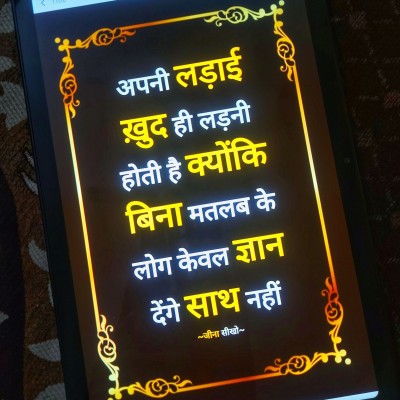 अपनी लड़ाई
ख़ुद ही लड़नी
होती है क्योंकि
बिना मतलब के
लोग केवल ज्ञान
देंगे साथ नहीं
~जीना सीखो~